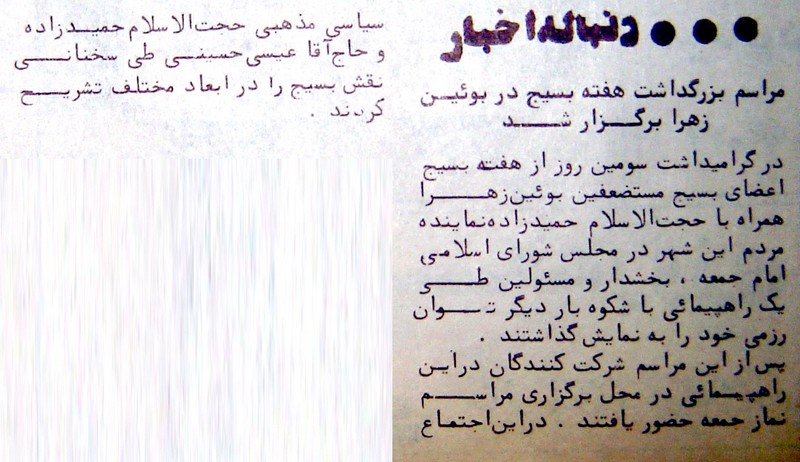 دنباله اخبار
مراسم بزرگداشت هفته بسیج در بوئین
زهرا برگزار شد
در گرامیداشت سومین روز از هفته بسیج
اعضای بسیج مستضعفین بوئین‌زهرا
همراه با حجت‌الاسلام حمیدزاده‌نماینده
مردم این شهر در مجلس شورای اسلامی
امام جمعه ، بخشدار و مسئولین طی
یک راهپیمائی با شکوه بار دیگر توان
رزمی خود را به نمایش‌گذاشتند .
پس‌از این مراسم شرکت کنندگان دراین
راهپیمائی در محل برگزاری مراسم
نماز جمعه حضور یافتند . دراین‌اجتماع
سیاسی مذهبی حجت‌الاسلام‌حمیدزاده
و حاج‌آقا عیسی‌حسینی طی سخنانی
نقش‌بسیج را در ابعاد مختلف تشریح
کردند .